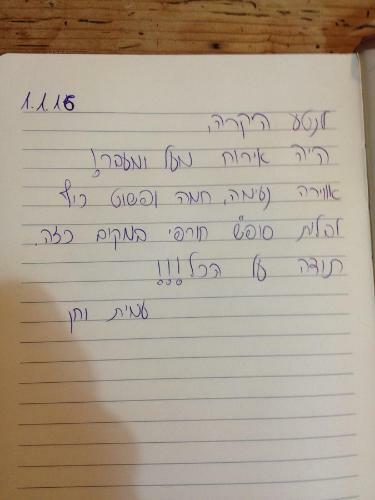 1.1.16
לנטע היקרה,
היה אירוח מעל ומעבר!
אווירה נעימה, חמה ופשוט כיף
לבלות סופש חורפי במקום כזה.
תודה על הכל!!!
עמית וחן